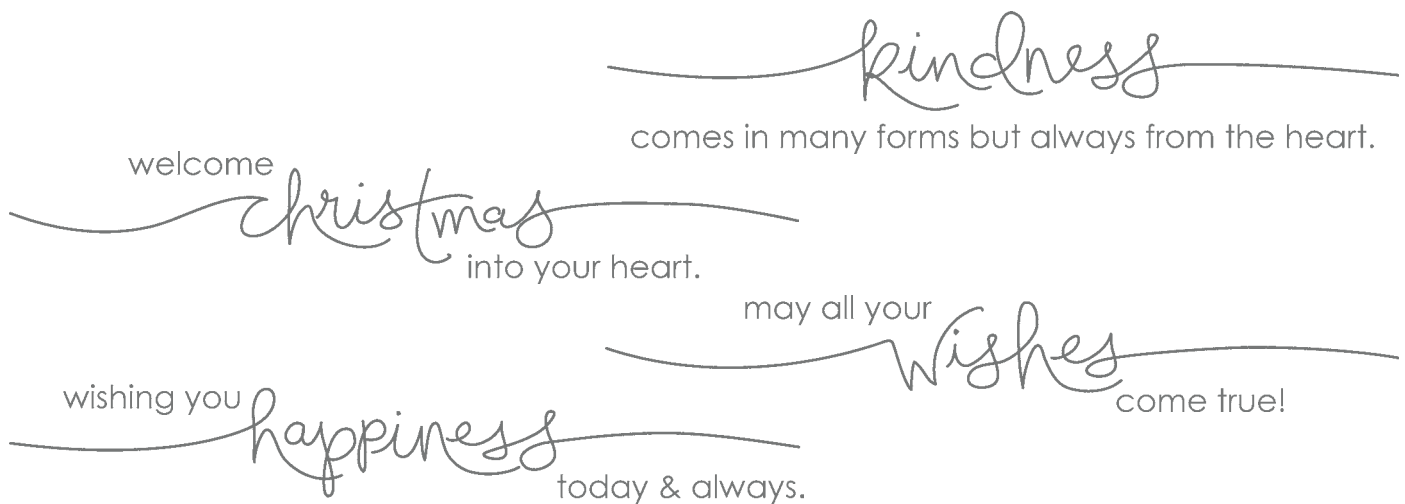 kindness
comes in many forms but always from the heart.
welcome
christmas
into your heart.
may all your
wishes
come true!
wishing you
happiness
today & always.